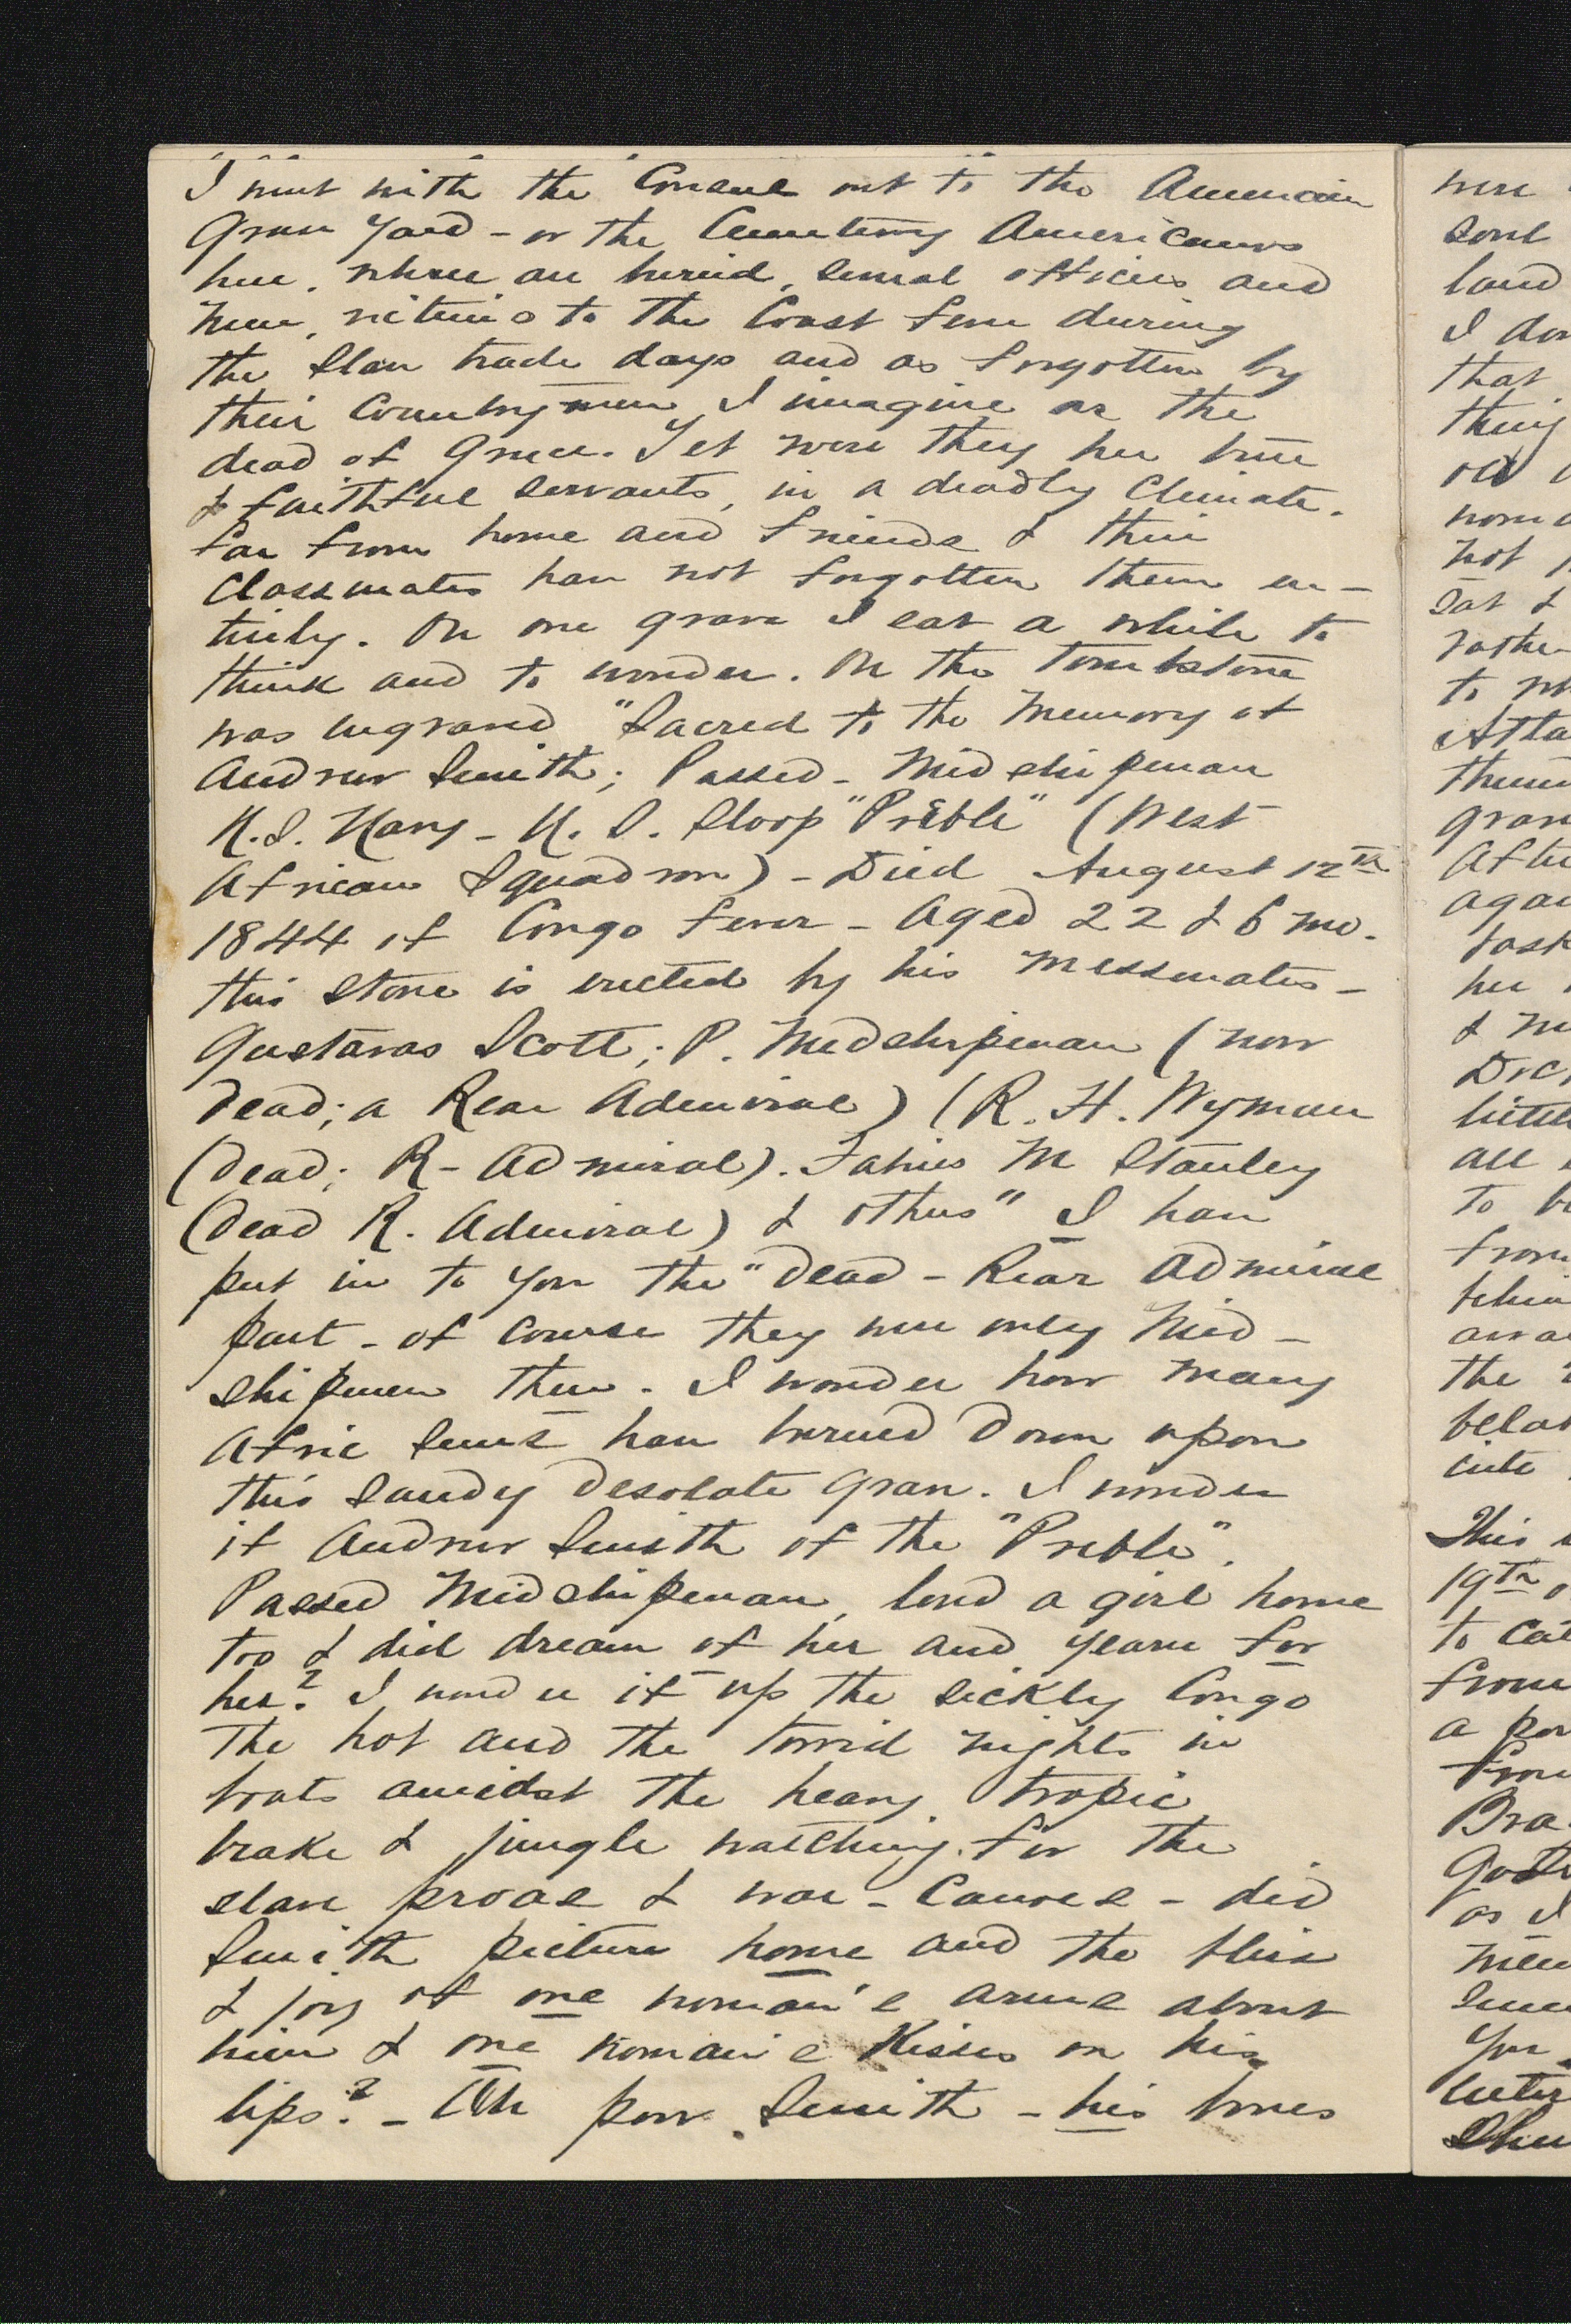 I went with the Consul out to the American
Grave Yard - or the Cemetery Americano
here, where are buried, several officers and
men, victims to the Coast fever during
the Slave trade days and as forgotten by
their Countrymen I imagine as the
dead of Greece. Yet were they her true
& faithful servants, in a deadly climate.
far from home and friends & their
Classmates have not forgotten them en-
tirely. On one grave I sat a while to
think and to wonder. On the Tombstone
was engraved "Sacred to the Memory of
Andrew Smith; Passed - Midshipman
U.S. Navy - U. S. Sloop "Preble" (West
African Squadron) - Died August 12th
1844 of Congo fever - Aged 22 & 6 mo.
this stone is erected by his messmates -
Gustavas Scott; P. Midshipman (now
dead; a Rear Admiral) (R. H. Wyman
(dead; R- Admiral). Fabius M Stanley
(dead R. Admiral) & others" I have
put in to you the "dead - Rear Admiral
part - of course they were only Mid-
shipmen then. I wonder how many
Afric suns have burned down upon
this sandy desolate grave. I wonder
if Andrew Smith of the "Preble".
Passed Midshipman, loved a girl home
too & did dream of her and yearn for
her? I wonder if up the sickly Congo
The hot and the torrid nights in
boats amidst the heavy tropic
brake & jungle watching for the
slave proas & war - Canoes - did
Smith picture home and the bliss
& joy of one woman's arms about
him & one woman's kisses on his
lips? - Ah poor Smith - his bones
were
soul
land
I don
that
thing
old
not
sat &
rather
to wh
Atta
grav
After
agai
task
her
&
little
all
to b
from
behin
the
belov
This
19th
to
from
a
from
Bra
as I
men